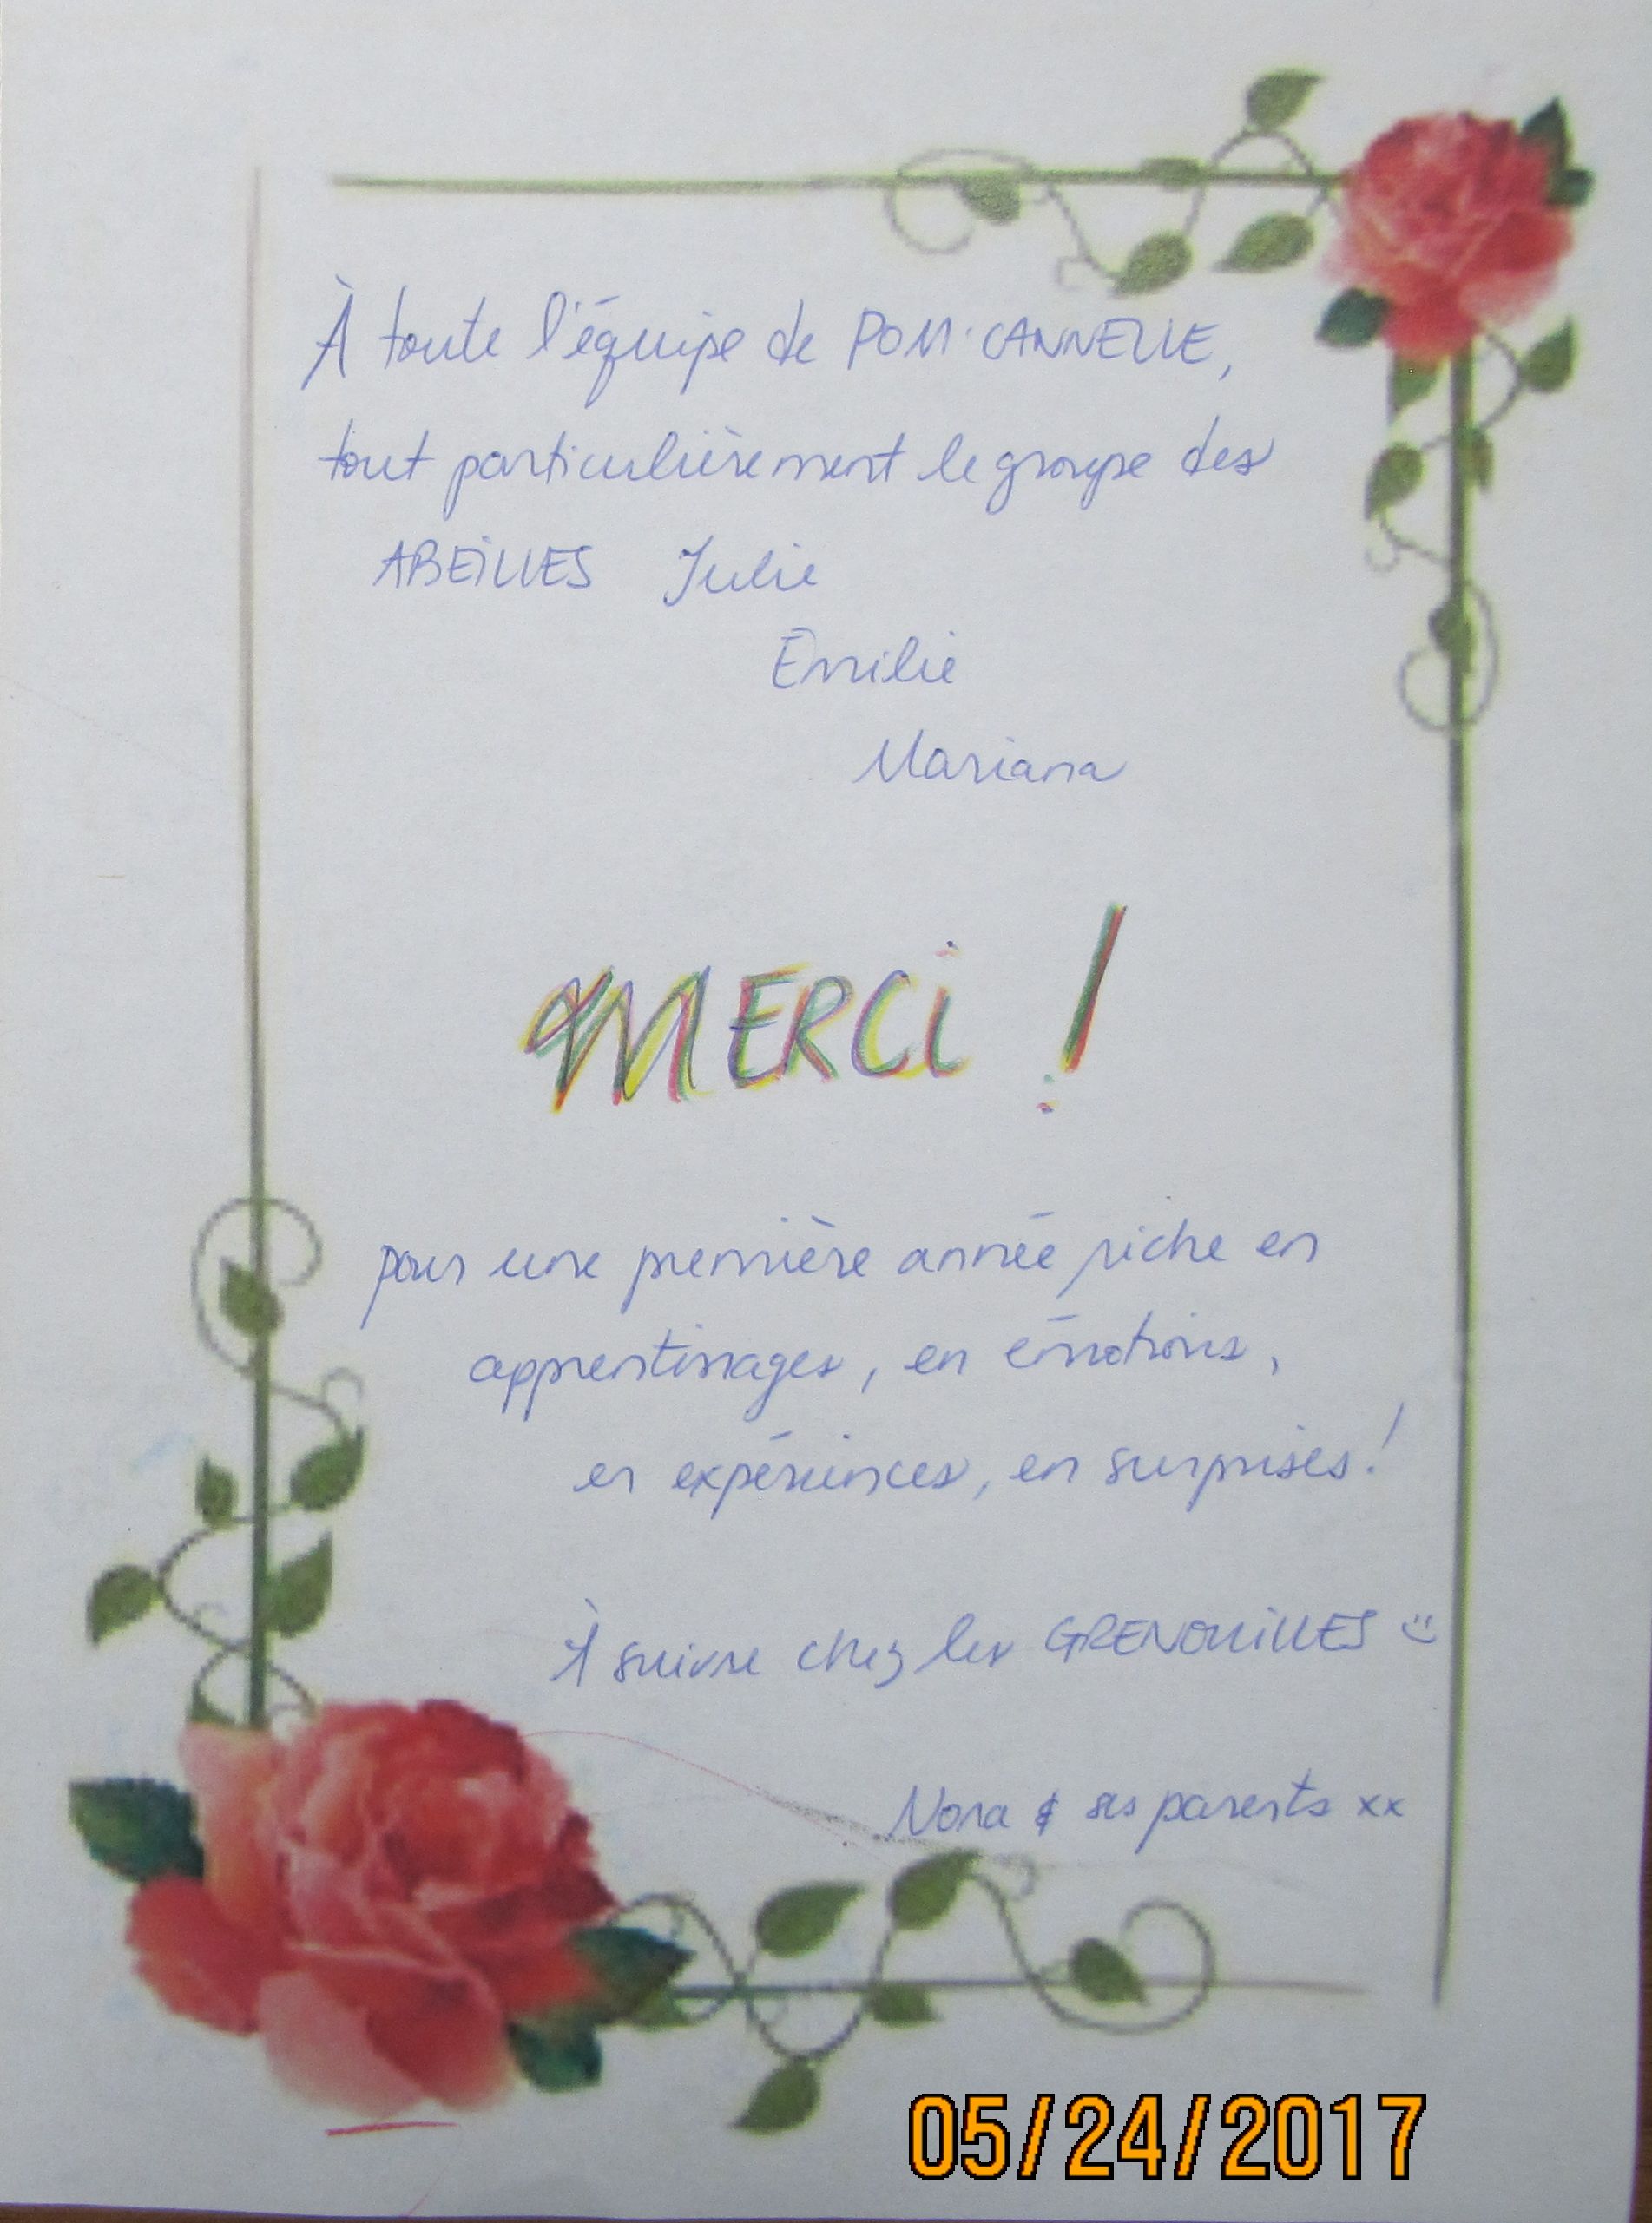 À toute l'équipe de POM'CANNELLE,
tout particulièrement le groupe des
ABEILLES Julie
Émilie
Mariana
MERCI !
pour une première année riche en
apprentissages, en émotions,
en expériences, en surprises!
À suivre chez les GRENOUILLES
Nora & ses parents xx
05/24/2017